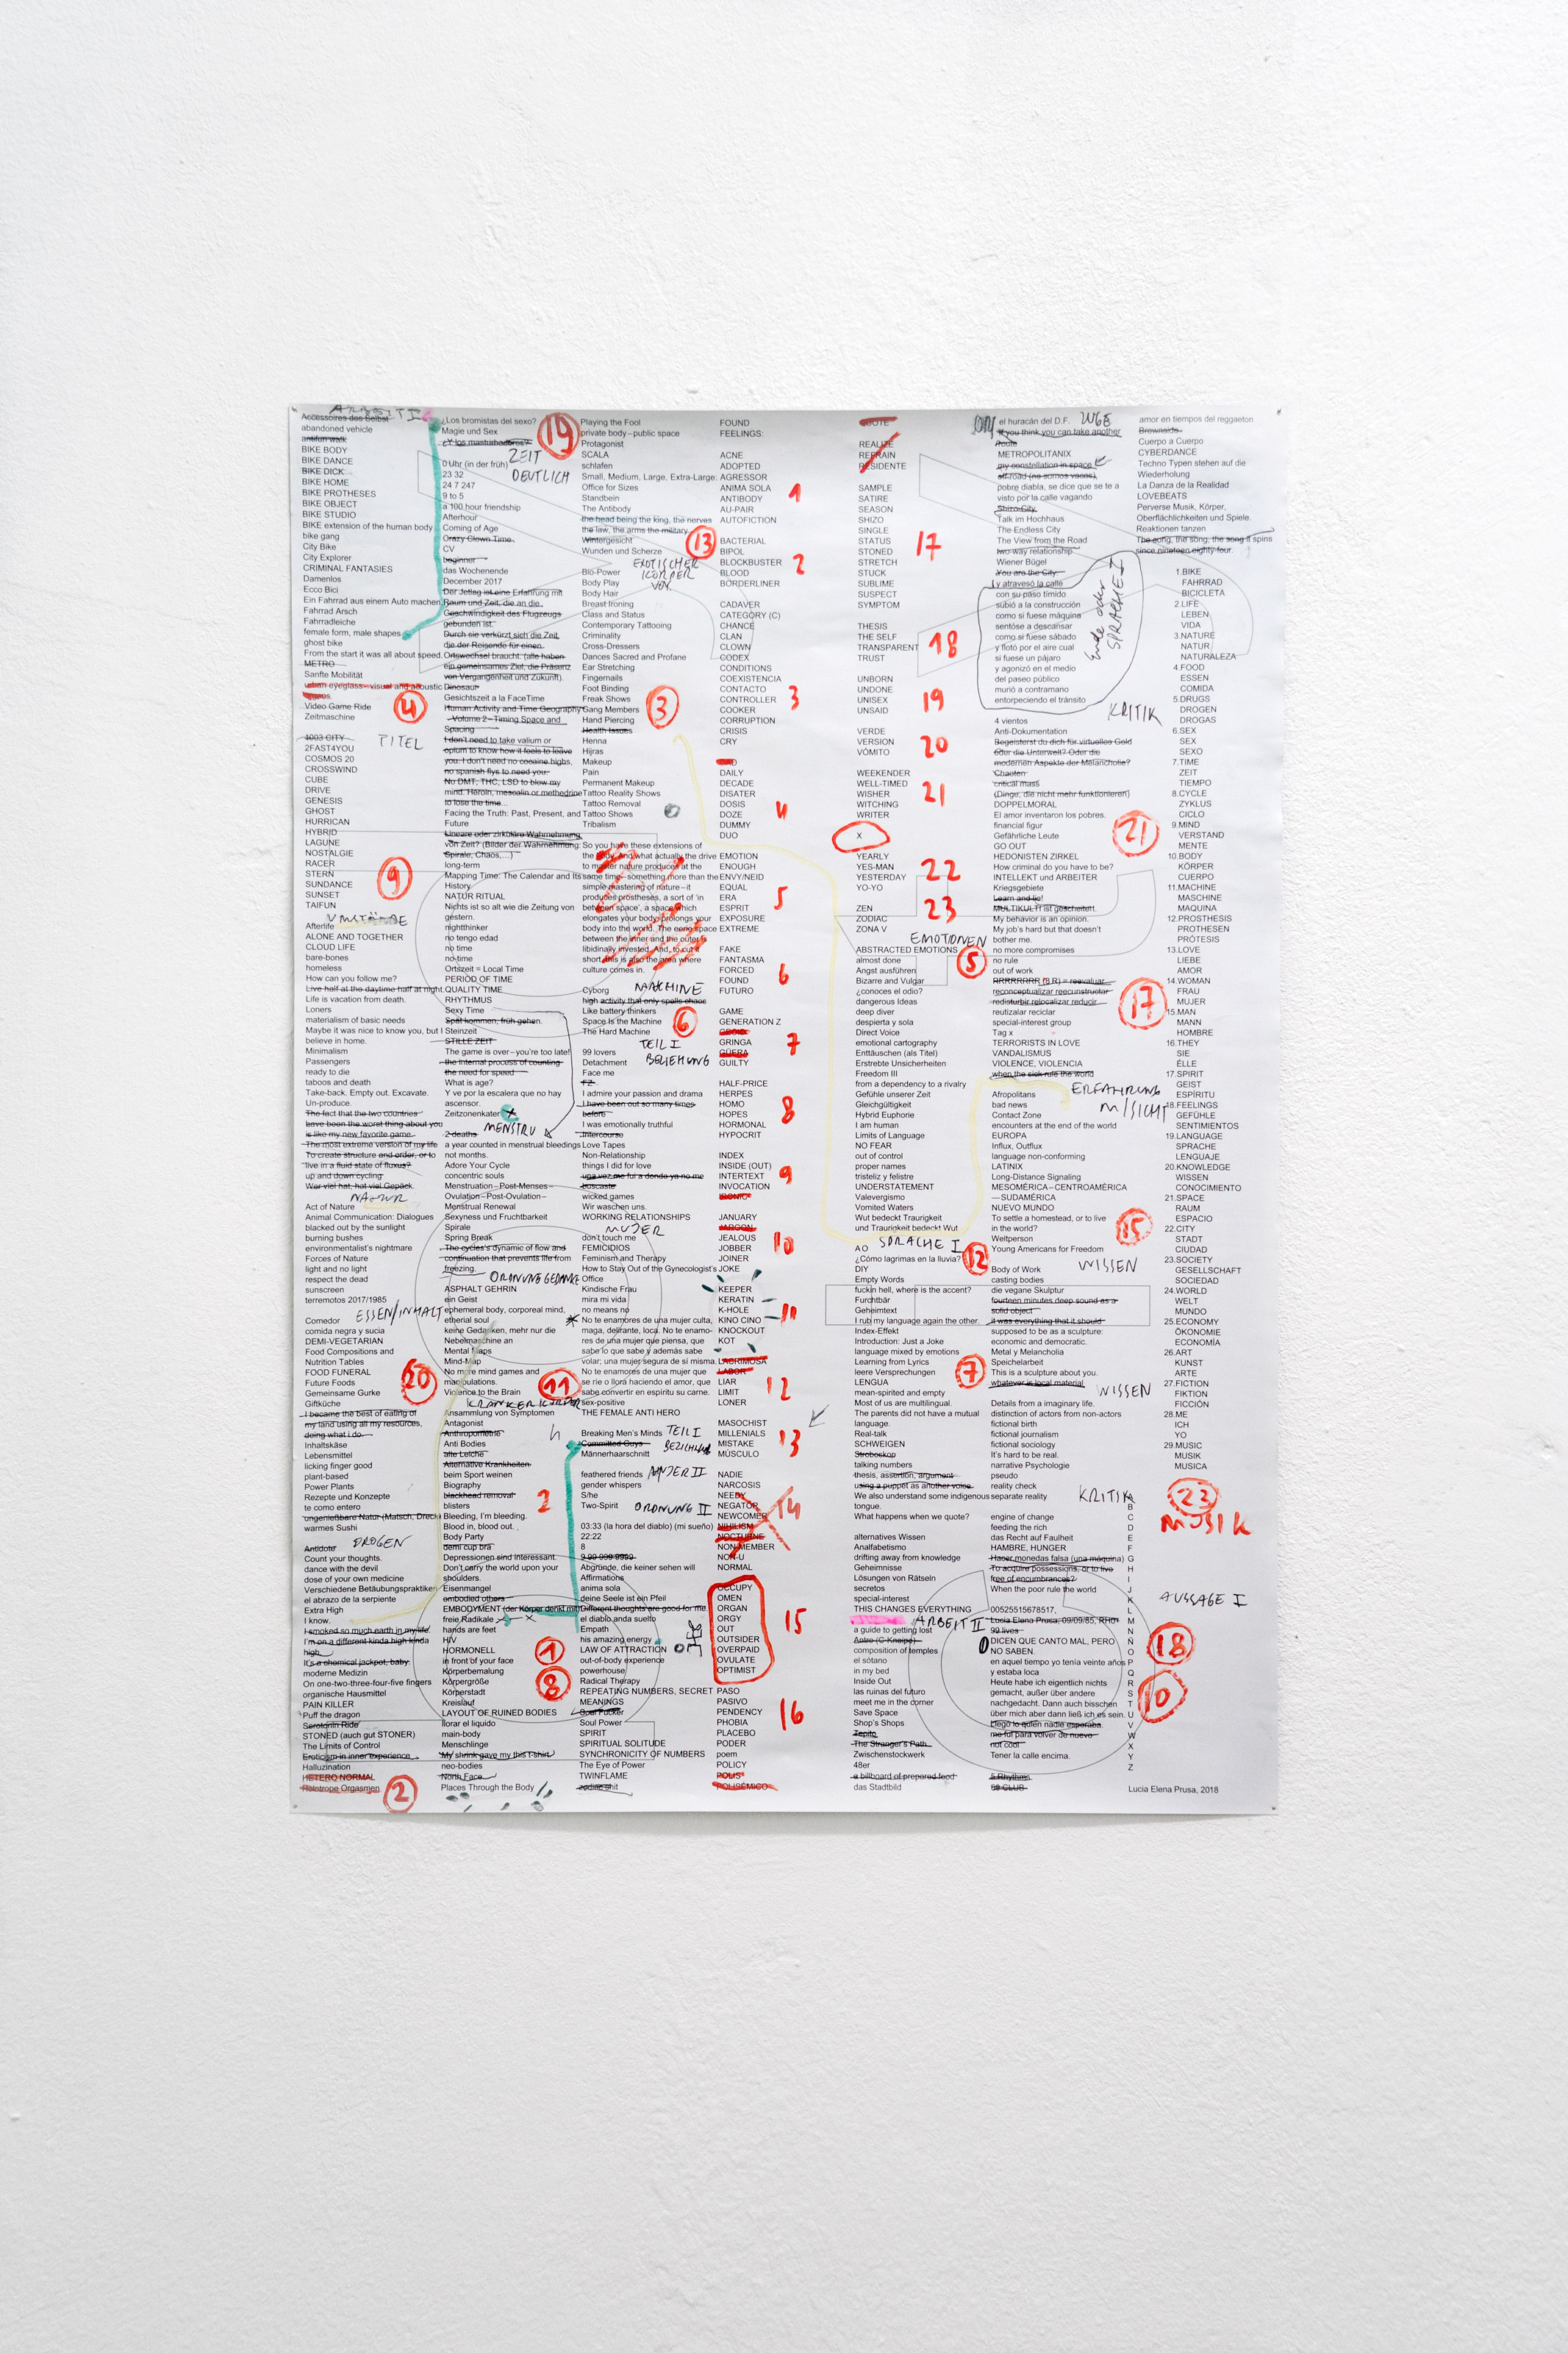 ARBEIT I
Accessoires des Selbst
abandoned vehicle
antifun walk
BIKE BODY
BIKE DANCE
BIKE DICK
BIKE HOME
BIKE PROTHESES
BIKE OBJECT
BIKE STUDIO
BIKE extension of the human body
bike gang
City Bike
City Explorer
CRIMINAL FANTASIES
Damenlos
Ecco Bici
Ein Fahrrad aus einem Auto machen
Fahrrad Arsch
Fahrradleiche
female form, male shapes
ghost bike
From the start it was all about speed.
METRO
Sanfte Mobilität
urban eyeglass–visual and acoustic
Video Game Ride
Zeitmaschine
4
TITEL
1003 CITY
2FAST4YOU
COSMOS 20
CROSSWIND
CUBE
DRIVE
GENESIS
GHOST
HURRICAN
HYBRID
LAGUNE
NOSTALGIE
RACER
STERN
SUNDANCE
SUNSET
TAIFUN
9
UMSTÄNDE
Afterlife
ALONE AND TOGETHER
CLOUD LIFE
bare-bones
homeless
How can you follow me?
Live half at the daytime half at night.
Life is vacation from death.
Loners
materialism of basic needs
Maybe it was nice to know you, but I
believe in home.
Minimalism
Passengers
ready to die
taboos and death
Take-back. Empty out. Excavate.
Un-produce.
The fact that the two countries
have been the worst thing about you
is like my new favorite game.
The most extreme version of my life
To create structure and order, or to
live in a fluid state of fluxus?
up and down cycling
Wer viel hat, hat viel Gepäck.
NATUR
Act of Nature
Animal Communication: Dialogues
blacked out by the sunlight
burning bushes
environmentalist's nightmare
Forces of Nature
light and no light
respect the dead
sunscreen
terremotos 2017/1985
ESSEN/INHALT
Comedor
comida negra y sucia
DEMI-VEGETARIAN
Food Compositions and
Nutrition Tables
FOOD FUNERAL
Future Foods
Gemeinsame Gurke
Giftküche
20
I became the best of eating of
my land using all my resources,
doing what i do.
Inhaltskäse
Lebensmittel
licking finger good
plant-based
Power Plants
Rezepte und Konzepte
te como entero
ungenießbare Natur (Matsch, Dreck)
warmes Sushi
DROGEN
Antidote
Count your thoughts.
dance with the devil
dose of your own medicine
Verschiedene Betäubungspraktiken
el abrazo de la serpiente
Extra High
I know.
I smoked so much earth in my life.
I'm on a different kinda high kinda
high
It's a chemical jackpot, baby.
moderne Medizin
On one-two-three-four-five fingers
organische Hausmittel
PAIN KILLER
Puff the dragon
Serotonin Ride
STONED (auch gut STONER)
The Limits of Control
Eroticism in inner experience
Halluzination
HETERO NORMAL
Holotrope Orgasmen
2
¿Los bromistas del sexo?
Magie und Sex
¿Y los masturbadores?
19
ZEIT
DEUTLICH
0 Uhr (in der früh)
23 32
24 7 247
9 to 5
a 100 hour friendship
Afterhour
Coming of Age
Crazy Clown Time
CV
beginner
das Wochenende
December 2017
Der Jetlag ist eine Erfahrung mit
Raum und Zeit, die an die
Geschwindigkeit des Flugzeugs
gebunden ist.
Durch sie verkürzt sich die Zeit,
die der Reisende für einen
Ortswechsel braucht. (alle haben
ein gemeinsames Ziel, die Präsenz
von Vergangenheit und Zukunft).
Dinosaur
Gesichtszeit a la FaceTime
Human Activity and Time Geography
– Volume 2 – Timing Space and
Spacing
I don't need to take valium or
opium to know how it feels to leave
you. I don't need no cocaine highs,
no spanish flys to need you.
No DMT, THC, LSD to blow my
mind. Heroin, mescalin or methedrine
to lose the time...
Facing the Truth: Past, Present, and
Future
Lineare oder zirkuläre Wahrnehmung
von Zeit? (Bilder der Wahrnehmung:
Spirale, Chaos,...)
long-term
Mapping Time: The Calendar and Its
History
NATUR RITUAL
Nichts ist so alt wie die Zeitung von
gestern.
nightthinker
no tengo edad
no time
no-time
Ortszeit = Local Time
PERIOD OF TIME
QUALITY TIME
RHYTHMUS
Sexy Time
Spät kommen, früh gehen.
Steinzeit
STILLE ZEIT
The game is over–you're too late!
the internal process of counting
the need for speed
What is age?
Y ve por la escalera que no hay
ascensor.
Zeitzonenkater
MENSTRU
2 deaths
a year counted in menstrual bleedings
not months.
Adore Your Cycle
concentric souls
Menstruation–Post-Menses–
Ovulation–Post-Ovulation–
Menstrual Renewal
Sexyness und Fruchtbarkeit
Spirale
Spring Break
The cycles's dynamic of flow and
continuation that prevents life from
freezing.
ORDNUNG GEDANKE
ASPHALT GEHRIN
ein Geist
ephemeral body, corporeal mind,
etherial soul
keine Gedanken, mehr nur die
Nebelmaschine an
Mental Maps
Mind-Map
No more mind games and
manipulations.
Violence to the Brain
11
KRANKER KÖRPER
Ansammlung von Symptomen
Antagonist
Anthropometrie
Anti Bodies
alte Leiche
Alternative Krankheiten
beim Sport weinen
Biography
blackhead removal
blisters
Bleeding, I'm bleeding.
Blood in, blood out.
Body Party
demi cup bra
2
Depressionen sind interessant.
Don't carry the world upon your
shoulders.
Eisenmangel
embodied others
EMBODYMENT (der Körper denkt mit)
freie Radikale
hands are feet
HIV
HORMONELL
in front of your face
Körperbemalung
Körpergröße
Körperstadt
Kreislauf
LAYOUT OF RUINED BODIES
llorar el liquido
main-body
Menschlinge
My shrink gave my this t-shirt
neo-bodies
North Face
Places Through the Body
1
8
Playing the Fool
private body–public space
Protagonist
SCALA
schlafen
Small, Medium, Large, Extra-Large:
Office for Sizes
Standbein
The Antibody
the head being the king, the nerves
the law, the arms the military
Wintergesicht
Wunden und Scherze
13
EXOTISCHER
KÖRPER
Bio-Power
Body Play
Body Hair
Breast Ironing
Class and Status
Contemporary Tattooing
Criminality
Cross-Dressers
Dances Sacred and Profane
Ear Stretching
Fingernails
Foot Binding
Freak Shows
Gang Members
Hand Piercing
Health Issues
Henna
Hijras
Makeup
Pain
Permanent Makeup
Tattoo Reality Shows
Tattoo Removal
Tattoo Shows
Tribalism
3
So you have these extensions of
the body, and what actually the drive
to master nature produces at the
same time–something more than the
simple mastering of nature–it
produces prostheses, a sort of 'in
between space', a space which
elongates your body, prolongs your
body into the world. The eerie space
between the inner and the outer is
libidinally invested. And, to cut it
short, this is also the area where
culture comes in.
MASCHINE
Cyborg
high activity that only spells chaos
Like battery thinkers
Space Is the Machine
The Hard Machine
6
TEIL I
BEZIEHUNG
99 lovers
Detachment
Face me
FZ
I admire your passion and drama
I have been out so many times
before
I was emotionally truthful
Intercourse
Love Tapes
Non-Relationship
things I did for love
una vez me fui a donde ya no me
buscaste
wicked games
Wir waschen uns.
WORKING RELATIONSHIPS
MUJER
don't touch me
FEMICIDIOS
Feminism and Therapy
How to Stay Out of the Gynecologist's
Office
Kindische Frau
mira mi vida
no means no
No te enamores de una mujer culta,
maga, delirante, loca. No te enamo-
res de una mujer que piensa, que
sabe lo que sabe y además sabe
volar; una mujer segura de sí misma.
No te enamores de una mujer que
se ríe o llora haciendo el amor, que
sabe convertir en espíritu su carne.
sex-positive
THE FEMALE ANTI HERO
TEIL I
Breaking Men's Minds
Committed Guys
Männerhaarschnitt
feathered friends
gender whispers
S/he
Two-Spirit
ORDNUNG II
03:33 (la hora del diablo) (mi sueño)
22:22
8
9 99 999 9999
Abgründe, die keiner sehen will
Affirmations
anima sola
deine Seele ist ein Pfeil
Different thoughts are good for me.
el diablo anda suelto
Empath
his amazing energy
LAW OF ATTRACTION
out-of-body experience
powerhouse
Radical Therapy
REPEATING NUMBERS, SECRET
MEANINGS
Soul Fucker
Soul Power
SPIRIT
SPIRITUAL SOLITUDE
SYNCHRONICITY OF NUMBERS
The Eye of Power
TWINFLAME
zodiac shit
FOUND
FEELINGS:
ACNE
ADOPTED
AGRESSOR
ANIMA SOLA
ANTIBODY
AU-PAIR
AUTOFICTION
1
BACTERIAL
BIPOL
BLOCKBUSTER
BLOOD
BORDERLINER
2
CADAVER
CATEGORY (C)
CHANCE
CLAN
CLOWN
CODEX
CONDITIONS
COEXISTENCIA
CONTACTO
CONTROLLER
COOKER
CORRUPTION
CRISIS
CRY
3
DAILY
DECADE
DISATER
DOSIS
DOZE
DUMMY
DUO
4
EMOTION
ENOUGH
ENVY/NEID
EQUAL
ERA
ESPRIT
EXPOSURE
EXTREME
5
FAKE
FANTASMA
FORCED
FOUND
FUTURO
6
GAME
GENERATION Z
GRINGA
GÜERA
GUILTY
7
HALF-PRICE
HERPES
HOMO
HOPES
HORMONAL
HYPOCRIT
8
INDEX
INSIDE (OUT)
INTERTEXT
INVOCATION
IRONIC
9
JANUARY
JARGON
JEALOUS
JOBBER
JOINER
JOKE
10
KEEPER
KERATIN
K-HOLE
KINO CINO
KNOCKOUT
KOT
11
LACRIMOSA
LABOR
LIAR
LIMIT
LONER
12
MASOCHIST
MILLENIALS
MISTAKE
MÚSCULO
13
NADIE
NARCOSIS
NEEDY
NEGATOR
NEWCOMER
NIHILISM
NOCTURNE
NON-MEMBER
NON-U
NORMAL
14
OCCUPY
OMEN
ORGAN
ORGY
OUT
OUTSIDER
OVERPAID
OVULATE
OPTIMIST
15
PASO
PASIVO
PENDENCY
PHOBIA
PLACEBO
PODER
poem
POLICY
POLIS
POLISÉMICO
16
QUOTE
REALIZE
REFRAIN
RESIDENTE
SAMPLE
SATIRE
SEASON
SHIZO
SINGLE
STATUS
STONED
STRETCH
STUCK
SUBLIME
SUSPECT
SYMPTOM
17
THESIS
THE SELF
TRANSPARENT
TRUST
18
UNBORN
UNDONE
UNISEX
UNSAID
19
VERDE
VERSION
VÓMITO
20
WEEKENDER
WELL-TIMED
WISHER
WITCHING
WRITER
21
X
YEARLY
YES-MAN
YESTERDAY
YO-YO
22
ZEN
ZODIAC
ZONA V
23
EMOTIONEN
ABSTRACTED EMOTIONS
almost done
Angst ausführen
Bizarre and Vulgar
¿conoces el odio?
dangerous Ideas
deep diver
despierta y sola
Direct Voice
emotional cartography
Enttäuschen (als Titel)
Erstrebte Unsicherheiten
Freedom III
from a dependency to a rivalry
Gefühle unserer Zeit
Gleichgültigkeit
Hybrid Euphorie
I am human
Limits of Language
NO FEAR
out of control
proper names
tristeliz y felistre
UNDERSTATEMENT
Valevergismo
Vomited Waters
Wut bedeckt Traurigkeit
und Traurigkeit bedeckt Wut
5
SPRACHE I
A O
¿Cómo lagrimas en la lluvia?
DIY
Empty Words
fuckin hell, where is the accent?
Furchtbär
Geheimtext
I rub my language again the other.
Index-Effekt
Introduction: Just a Joke
language mixed by emotions
Learning from Lyrics
leere Versprechungen
LENGUA
mean-spirited and empty
Most of us are multilingual.
The parents did not have a mutual
language.
Real-talk
SCHWEIGEN
Stroboskop
talking numbers
thesis, assertion, argument
using a puppet as another voice
We also understand some indigenous
tongue.
What happens when we quote?
12
7
alternatives Wissen
Analfabetismo
drifting away from knowledge
Geheimnisse
Lösungen von Rätseln
secretos
special-interest
THIS CHANGES EVERYTHING
ARBEIT II
a guide to getting lost
Antro (C-Kneipe)
composition of temples
el sótano
in my bed
Inside Out
las ruinas del futuro
meet me in the corner
Save Space
Shop's Shops
Tepito
The Stranger's Path
Zwischenstockwerk
48er
a billboard of prepared food
das Stadtbild
el huracán del D.F.
If you think you can take another
Route
METROPOLITANIX
my constellation in space
off-road (no somos vacas),
pobre diabla, se dice que se te a
visto por la calle vagando
Shizo City
Talk im Hochhaus
The Endless City
The View from the Road
two-way relationship
Wiener Bügel
You are the City
y atravesó la calle
con su paso tímido
subió a la construcción
como si fuese máquina
sentóse a descansar
como si fuese sábado
y flotó por el aire cual
si fuese un pájaro
y agonizó en el medio
del paseo público
murió a contramano
entorpeciendo el tránsito
Ende oder
SPRACHE I
KRITIK
4 vientos
Anti-Dokumentation
Begeisterst du dich für virtuelles Geld
oder die Unterwelt? Oder die
modernen Aspekte der Melancholie?
Chaoten
critical mass
(Dinge, die nicht mehr funktionieren)
DOPPELMORAL
El amor inventaron los pobres.
financial figur
Gefährliche Leute
GO OUT
HEDONISTEN ZIRKEL
How criminal do you have to be?
INTELLEKT und ARBEITER
Kriegsgebiete
Learn and lie!
MULTIKULTI ist gescheitert.
My behavior is an opinion.
My job's hard but that doesn't
bother me.
no more compromises
no rule
out of work
RRRRRRRR (8 R) = reevaluar
reconceptualizar reecunstructar
redisturbir relocalizar reducir
reutizalar reciclar
special-interest group
Tag x
TERRORISTS IN LOVE
VANDALISMUS
VIOLENCE, VIOLENCIA
when the sick rule the world
21
17
ERFAHRUNG
Afropolitans
bad news
Contact Zone
encounters at the end of the world
EUROPA
Influx, Outflux
language non-conforming
LATINIX
Long-Distance Signaling
MESOMÉRICA–CENTROAMÉRICA
—SUDAMÉRICA
NUEVO MUNDO
To settle a homestead, or to live
in the world?
Weltperson
Young Americans for Freedom
15
WISSEN
Body of Work
casting bodies
die vegane Skulptur
fourteen minutes deep sound as a
solid object
it was everything that it should
supposed to be as a sculpture:
economic and democratic.
Metal y Melancholia
Speichelarbeit
This is a sculpture about you.
whatever is local material
WISSEN
Details from a imaginary life.
distinction of actors from non-actors
fictional birth
fictional journalism
fictional sociology
It's hard to be real.
narrative Psychologie
pseudo
reality check
separate reality
KRITIK
engine of change
feeding the rich
das Recht auf Faulheit
HAMBRE, HUNGER
Hacer monedas falsa (una máquina)
To acquire possessions, or to live
free of encumbrances?
When the poor rule the world
AUSSAGE I
00525515678517,
Lucia Elena Prusa, 09/09/85, RH0+
99 lives
DICEN QUE CANTO MAL, PERO
NO SABEN.
en aquel tiempo yo tenía veinte años
y estaba loca
Heute habe ich eigentlich nichts
gemacht, außer über andere
nachgedacht. Dann auch bisschen
über mich aber dann ließ ich es sein.
Llego lo quien nadie esperaba.
me fui para volver de nuevo
not cool
Tener la calle encima.
5 Rhythms
69 CLUB
18
10
amor en tiempos del reggaeton
Brownside
Cuerpo a Cuerpo
CYBERDANCE
Techno Typen stehen auf die
Wiederholung
La Danza de la Realidad
LOVEBEATS
Perverse Musik, Körper,
Oberflächlichkeiten und Spiele.
Reaktionen tanzen
The song, the song, the song it spins
since nineteen eighty four.
1.BIKE
FAHRRAD
BICICLETA
2.LIFE
LEBEN
VIDA
3.NATURE
NATUR
NATURALEZA
4.FOOD
ESSEN
COMIDA
5.DRUGS
DROGEN
DROGAS
6.SEX
SEX
SEXO
7.TIME
ZEIT
TIEMPO
8.CYCLE
ZYKLUS
CICLO
9.MIND
VERSTAND
MENTE
10.BODY
KÖRPER
CUERPO
11.MACHINE
MASCHINE
MAQUINA
12.PROSTHESIS
PROTHESEN
PRÓTESIS
13.LOVE
LIEBE
AMOR
14.WOMAN
FRAU
MUJER
15.MAN
MANN
HOMBRE
16.THEY
SIE
ÉLLE
17.SPIRIT
GEIST
ESPÍRITU
18.FEELINGS
GEFÜHLE
SENTIMIENTOS
19.LANGUAGE
SPRACHE
LENGUAJE
20.KNOWLEDGE
WISSEN
CONOCIMIENTO
21.SPACE
RAUM
ESPACIO
22.CITY
STADT
CIUDAD
23.SOCIETY
GESELLSCHAFT
SOCIEDAD
24.WORLD
WELT
MUNDO
25.ECONOMY
ÖKONOMIE
ECONOMÍA
26.ART
KUNST
ARTE
27.FICTION
FIKTION
FICCIÓN
28.ME
ICH
YO
29.MUSIC
MUSIK
MUSICA
23
MUSIK
A
B
C
D
E
F
G
H
I
J
K
L
M
N
Ñ
O
P
Q
R
S
T
U
V
W
X
Y
Z
Lucia Elena Prusa, 2018